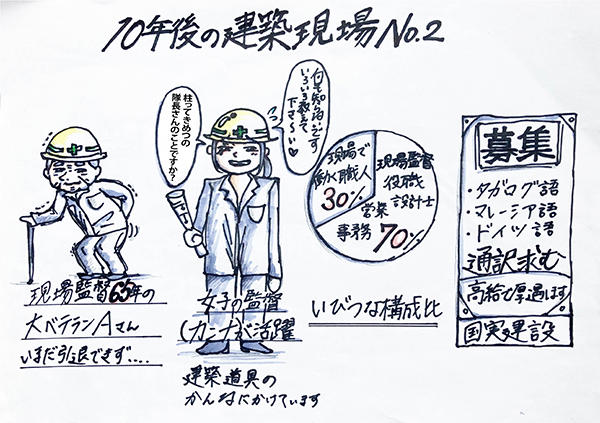 10年後の建築現場No.2
柱ってきめつの
隊長さんのことですか?
何も知らないんです
いろいろ教えて
下さ〜い♡
現場で
働く職人
30%
現場監督
役職
営業 設計士
事務 70%
いびつな構成比
募集
・タガログ語
・マレーシア語
・ドイツ語
通訳求む
高給で厚遇します
国実建設
現場監督65年の
大ベテランAさん
いまだ引退できず....
女子の監督
(カンナ)が活躍
建築道具の
かんなにかけています